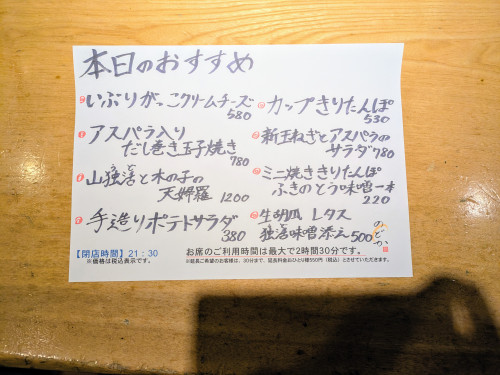 本日のおすすめ
いぶりがっこクリームチーズ
580
アスパラ入り
だし巻き玉子焼き
780
山独活と木の子の
天婦羅 1200
手造りポテトサラダ
380
カップきりたんぽ
530
新玉ねぎとアスパラの
サラダ780
ミニ焼ききりたんぽ
ふきのとう味噌一本
220
生胡瓜 レタス
独活味噌添え500
のどか
【閉店時間】21:30
※価格は税込表示です。
お席のご利用時間は最大で2時間30分です。
※延長ご希望のお客様は、30分まで、延長料金おひとり様550円(税込)とさせていただきます。